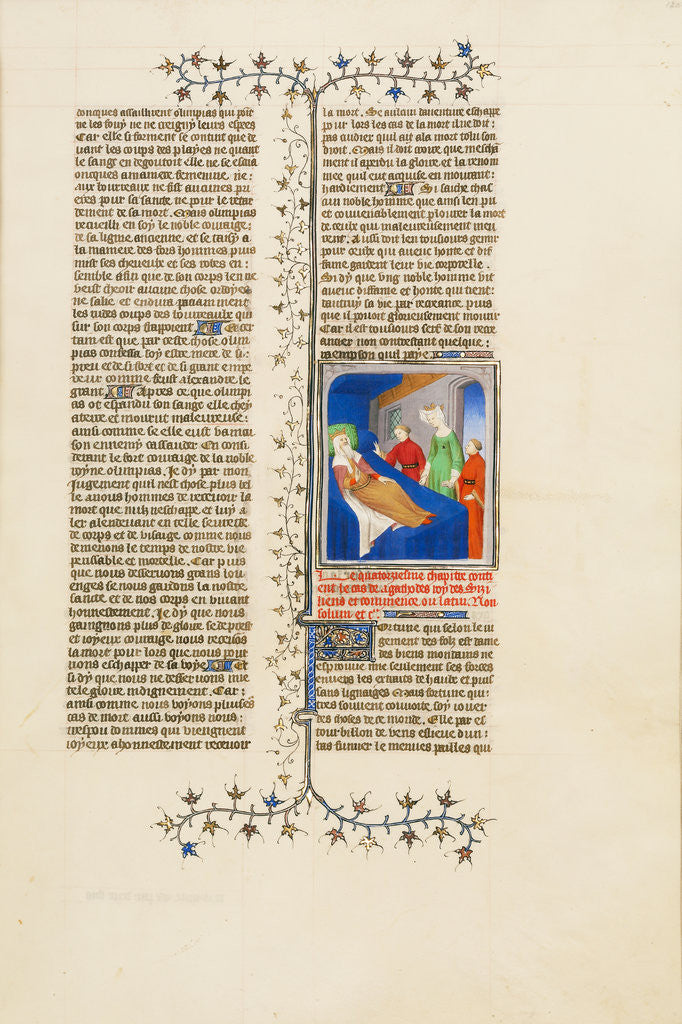 donques assaillirent olimpias qui post
ne les fouy ne ne creigny leurs espees
Car elle si forment se contint que de
uant les coups des playes ne quant
le sang en degoutoit elle ne se escria
oncques a maniere femenine ne :
aux bourreaux ne fist aucunes pri
eres pour sa sante ne pour le retar
dement de sa mort . Mais olimpias
recueilli en soy le noble courage :
de sa ligne ancienne et se taisy a
la maniere des fors hommes puis
mist ses cheueulx et ses robes en :
semble affin que de son corps len ne
veist cheoir aucune chose orde
ne salie et endura paciamment
les rudes coups des bourreaux qui
sur son corps frappoient . Et cer
tain est que par ceste chose olim
pias confessa soy estre mere de si :
preu et de si fort et de si grant empe
reur comme feust alixandre le
grant Apres ce que olimpi
as ot espandu son sang elle chey
a terre et mourut maleureuse :
ainsi comme se elle eust vaincu
son ennemy cassander En consi
derant le fort courage de la noble
royne olimpias . Je dy par mon
jugement quil nest chose plus bel
le a nous hommes de recevoir la
mort que nulz neschappe et luy a
ler alendeuant en telle seurete
de corps et de visaige comme nous
demenons le temps de nostre vie
perissable et mortelle . Car puis
que nous desseruons grans lou
enges se nous gardons la nostre
sante et de nos corps en viuant
honnestement . Je dy que nous
gaingnons plus de gloire se de prest
et ioyeux courage nous receuos
la mort pour lors que nous pour
rions eschapper de sa voye Et
si dy que nous ne desseruons mie
tele gloire indignement . Car :
ainsi comme nous voyons pluseurs
cas de mort aussi voyons nous :
trespou dommes qui viengnent
ioyeux a honnestement recevoir
la mort . Se aucun dauenture eschappe
pour lors les cas de la mort il ne doit :
pas cuider quil ait a la mort tolu son
droit . Mais il doit croire que mescha
ment il a perdu la gloire et la renom
mee quil eut acquise en mourant :
hardiement Si sache chas
cun noble homme que ainsi len pu
et conuenablement plourer la mort
de ceulx qui maleureusement meu
rent . Aussi doit len tousiours gemir
pour ceulx qui auec honte et dif
fame gardent leur vie corporelle .
Si dy que ung noble homme vit
auec diffame et honte qui tient :
dautruy sa vie par recreance puis
que il pouoit glorieusement mourir
Car il est tousiours serf de son recre
ancier non contrestant quelque :
raempson quil paye
Le quatorziesme chapitre conti
ent le cas de agathodes roy des Sizi
liens et commence ou latin . Non
solum et c
Fortune qui selon le iu
gement des folz est dame
des biens mondains ne
esprouue mie seulement ses forces
enuers les extraits de hault et puis
sans lignaiges Mais fortune qui :
tres souuent conuoite soy iouer
des choses de ce monde . Elle par es
tourbillon de vens eslieue dun :
bas fumier le menues pailles qui